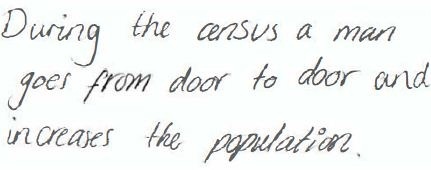 During the census a man
goes from door to door and
increases the population.